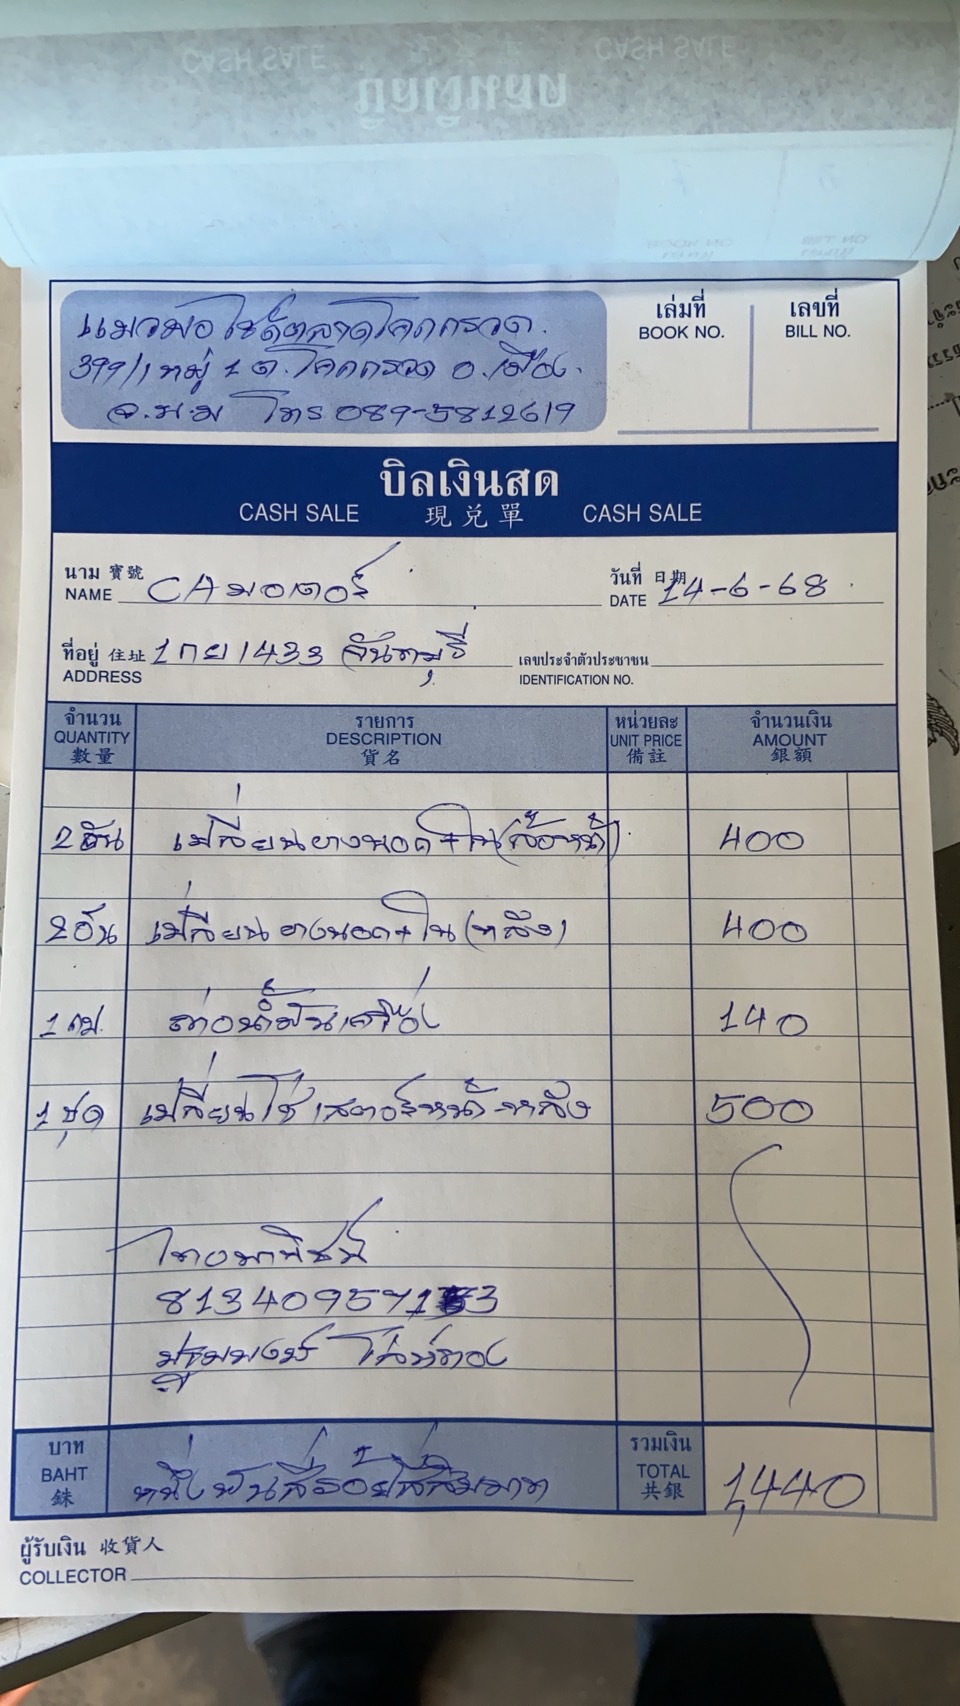 แมวมอไซด์ตลาดโคกกรวด.
399/1 หมู่ 1 ต.โคกกรวด อ.เมือง.
จ.น.ม โทร 089-5812619
เล่มที่
BOOK NO.
เลขที่
BILL NO.
บิลเงินสด
CASH SALE 現兌單 CASH SALE
นาม 寶號
NAME CAมอเตอร์
วันที่ 日期
DATE 14-6-68
ที่อยู่ 住址 1กย1433 จันทบุรี
ADDRESS
เลขประจำตัวประชาชน
IDENTIFICATION NO.
จำนวน รายการ หน่วยละ จำนวนเงิน
QUANTITY DESCRIPTION UNIT PRICE AMOUNT
數量 貨名 備註 銀額
2อัน เปลี่ยนยางนอก+ใน(ล้อหน้า) 400
2อัน เปลี่ยนยางนอก+ใน(หลัง) 400
1 ถ่ายน้ำมันเครื่อง 140
1ชุด เปลี่ยนโซ่ เสตอร์หน้า-หลัง 500
ไทยพานิชย์
ใจ
บาท
BAHT
銖
หนึ่งพันสี่ร้อยสี่สิบบาท
รวมเงิน
TOTAL
共銀
1,440
ผู้รับเงิน 收貨人
COLLECTOR